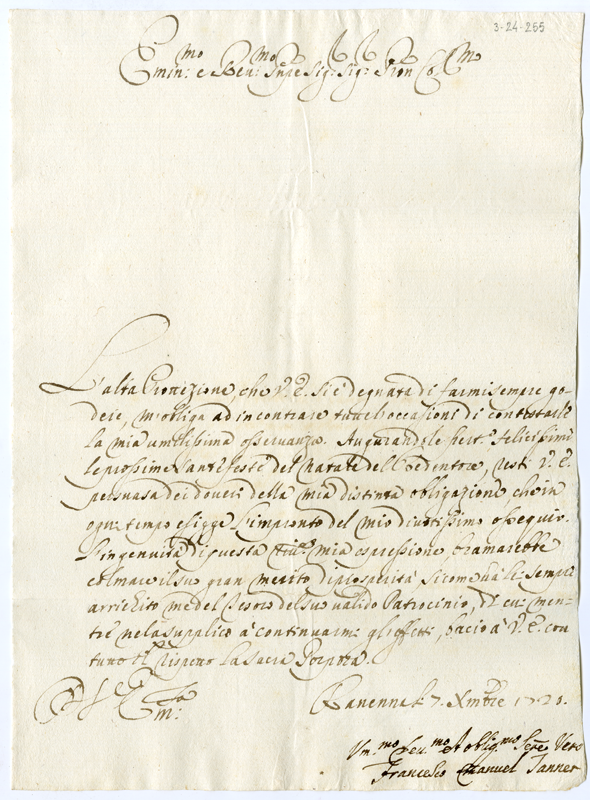 3-24-255
Emin:mo e Reu:mo Sig: Sig: Pron Co:mo
L'alta Protezione, che V. E. si è degnata di farmi sempre go-
dere, m'obliga ad incontrare tutte l'occasioni di contestarle
la mia umilissima osservanza. Augurandole felicissime
le prossime Sante feste del Natale del Redentore, resti V. E.
persuasa dei doveri della mia distinta obligazione che in
ogni tempo esigge l'impronto del mio divotissimo ossequio.
L'ingenuità di questa mia espressione bramarebbe
colmare il suo gran merito di prosperità sicome ha le sempre
arrichito me del Tesoro del suo valido Patrocinio, di cui men-
tre ne la supplico à continuarmi gli effetti, bacio à V. E. con
tutto il rispetto la Sacra Porpora.
Rauenna li 7. Xmbre 1721.
Vm.mo Deu.mo et oblig.mo Sere Vero
Francesco Emanuel Tanner